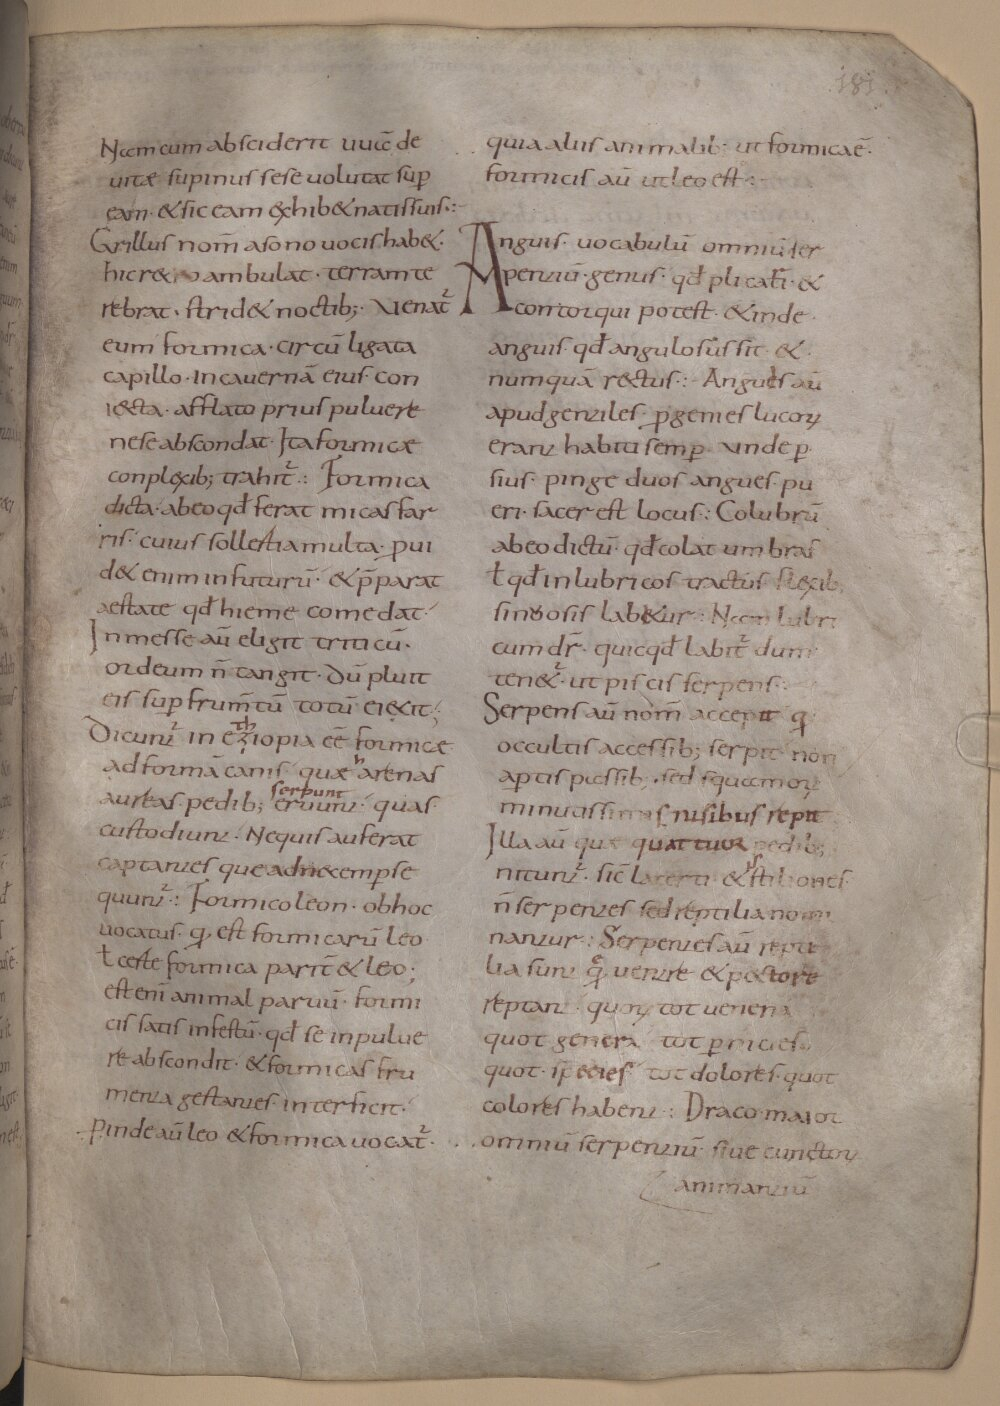 181
Nam cum absciderit uuā de
uitæ supinus sese uolutat sup̄
eam · & sic eam exhib& natis suis ·:
Grillus nom̄ a sono uocis hab& ·
hic r&ro ambulat · terram te
rebrat · strid& noctib; · Venat̄
eum formica · circū ligata
capillo · in cauernā eius con
iecta · afflato prius puluere
ne se abscondat · Ita formicæ
conplexib; trahit̄ ·: Formica
dicta · ab eo qđ ferat micas far
ris · cuius sollertia multa · ꝓui
d& enim in futurū · & p̄parat
aestate qđ hieme comedat ·
In messe aū eligit triticū ·
ordeum n̄ tangit · Dū pluit
eis sup frum̄tū totū eiexit ;
Dicunt̄ in ethiopia eē formicæ
ad formā canis · quæ arenas
aureas pedib; eruunt · quas
serpunt
custodiunt · Nequis auferat
captantes que adnecem persequunt̄ ·: Formicoleon · ob hoc
uocatus · q̄ est formicarū leo
ł certe formica parit̄ & leo ;
est enī animal paruū · formi
cis satis infestū · qđ se in pulue
re abscondit · & formicas fru
menta gestantes · interficit ·
Pinde aū leo & formica uocat̄ ·
quia aliis animalib; ut formica ē ·
formicis aū ut leo est ·:
Anguis · uocabulū omniū ser
pentiū · genus · qđ plicari · &
contorqui potest · & inde ·
anguis · qđ angulosus sit · &
numquā rectus ·: Angues aū
apud gentiles · ꝑ genies locoꝝ
erant habiti semꝑ · unde ꝑ
sius · pinge duos angues · pu
eri · sacer est locus ·: Colubrū
ab eo dictū · qđ colat umbras
ł qđ in lubricos tractus flexib;
sinuosis labatur ·: Nam lubri
cum dr̄ · quicqđ labit̄ dum
ten&̄ · ut piscis serpens ·:
Serpens aū nom̄ accepit q̄
occultis accessib; serpit non
apertis passib; · sed squamaꝝ
minutissimis nisibus repit
Illa aū quæ quattuor pedib;
nitunt̄ · sic̄ lacerti & stiliones ·
n̄ serpentes sed reptilia nomi
nantur ·: Serpentes aū repti
lia sunt q̄ uentre & pectore
reptant · quoꝝ tot uenena
quot genera tot ꝑnicies
quot · species · tot dolores · quot
colores habent ·: Draco maior
omniū serpentiū · siue cunctoꝝ
animantiū